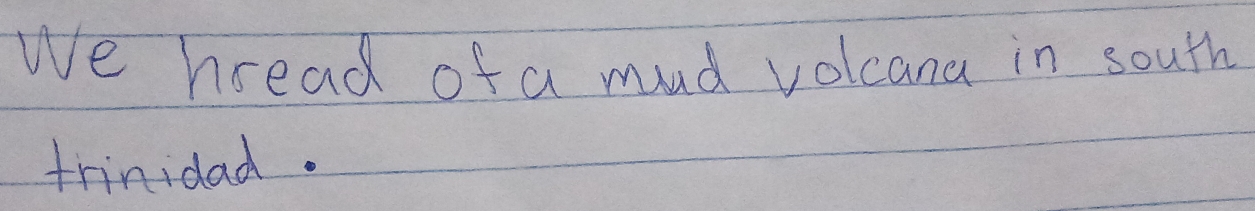 We hread of a mud volcana in south
trinidad.